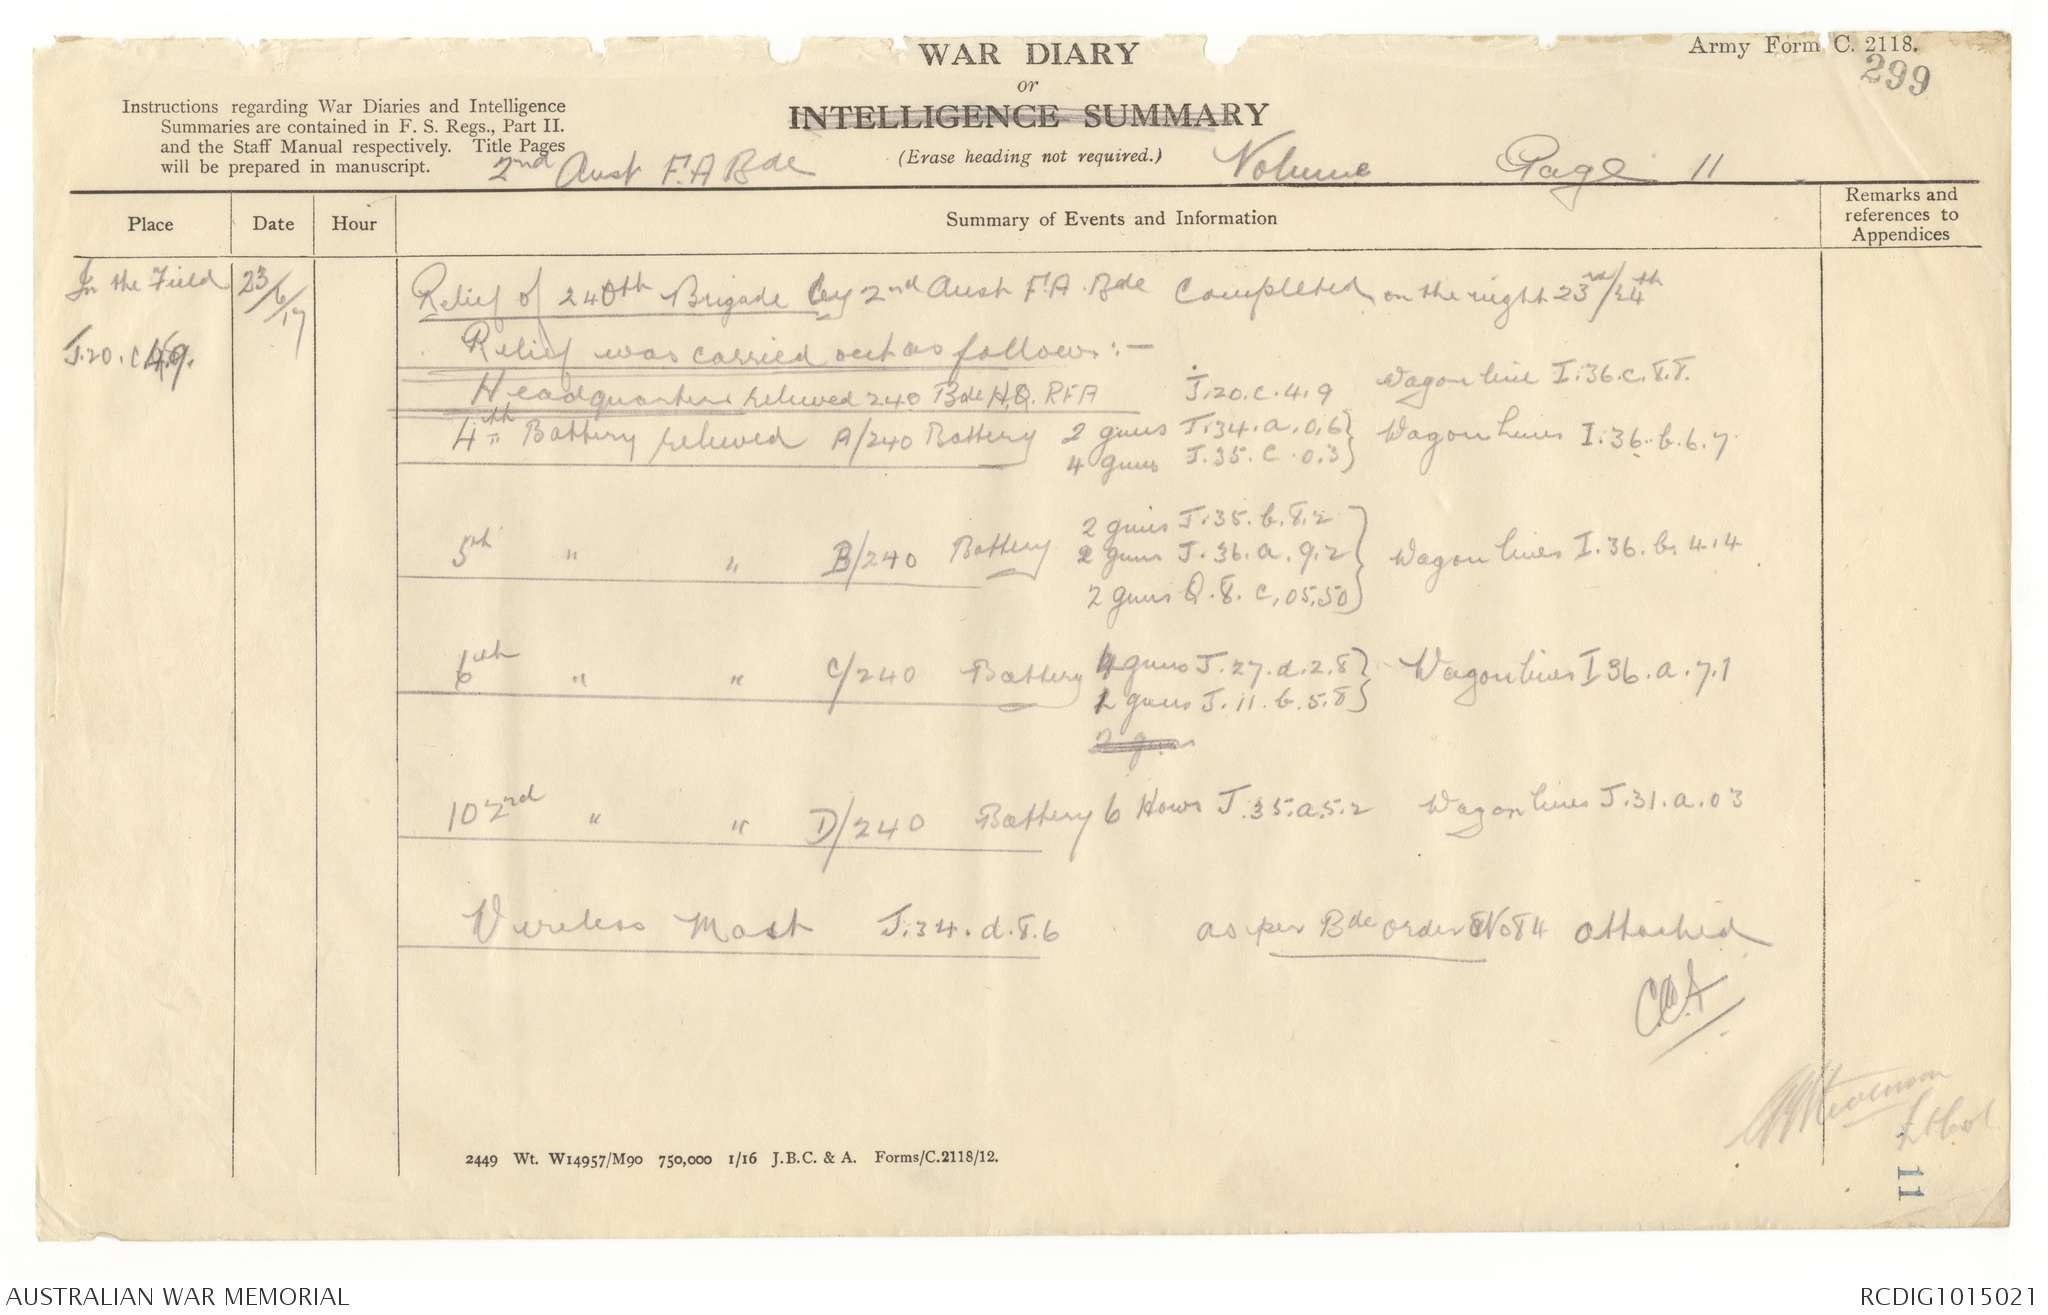 WAR DIARY
or
INTELLIGENCE SUMMARY
(Erase heading not required.)
Army Form C. 2118.
299
Instructions regarding War Diaries and Intelligence
Summaries are contained in F. S. Regs., Part II.
and the Staff Manual respectively. Title Pages
will be prepared in manuscript.
2nd Aust F.A Bde
Volume Page 11
Place Date Hour Summary of Events and Information Remarks and references to Appendices
In the Field 23/6/17 Relief of 240th Brigade by 2nd Aust F.A. Bde completed on the night 23rd/24th
J.20.c.4.9. Relief was carried out as follows:-
Headquarters relieved 240 Bde H.Q. RFA J.20.c.4.9 Wagon line I.36.c.8.8.
4th Battery relieved A/240 Battery 2 guns J.34.a.0.6 } Wagon lines I.36.b.6.7
4 guns J.35.c.0.3 }
5th " " B/240 Battery 2 guns J.35.b.8.2 }
2 guns J.36.a.9.2 } Wagon lines I.36.b.4.4
2 guns O.8.c.05.50 }
6th " " C/240 Battery 4 guns J.27.d.2.8 } Wagon lines I 36.a.7.1
2 guns J.11.b.5.8 }
2 guns
102nd " " D/240 Battery 6 Hows J.35.a.5.2 Wagon lines J.31.a.03
Wireless Mast J.34.d.8.6 as per Bde order No 84 attached
Stevenson
Lt Col
2449 Wt. W14957/M90 750,000 1/16 J.B.C. & A. Forms/C.2118/12.
11
AUSTRALIAN WAR MEMORIAL
RCDIG1015021